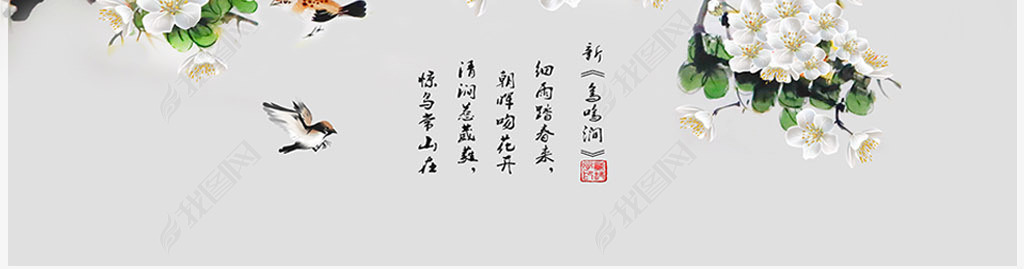 新《鸟鸣涧》
细雨踏春来，
朝晖吻花开
清涧惹葳蕤，
惊鸟常山在
找图网
找图网
找图网
找图网
找图网